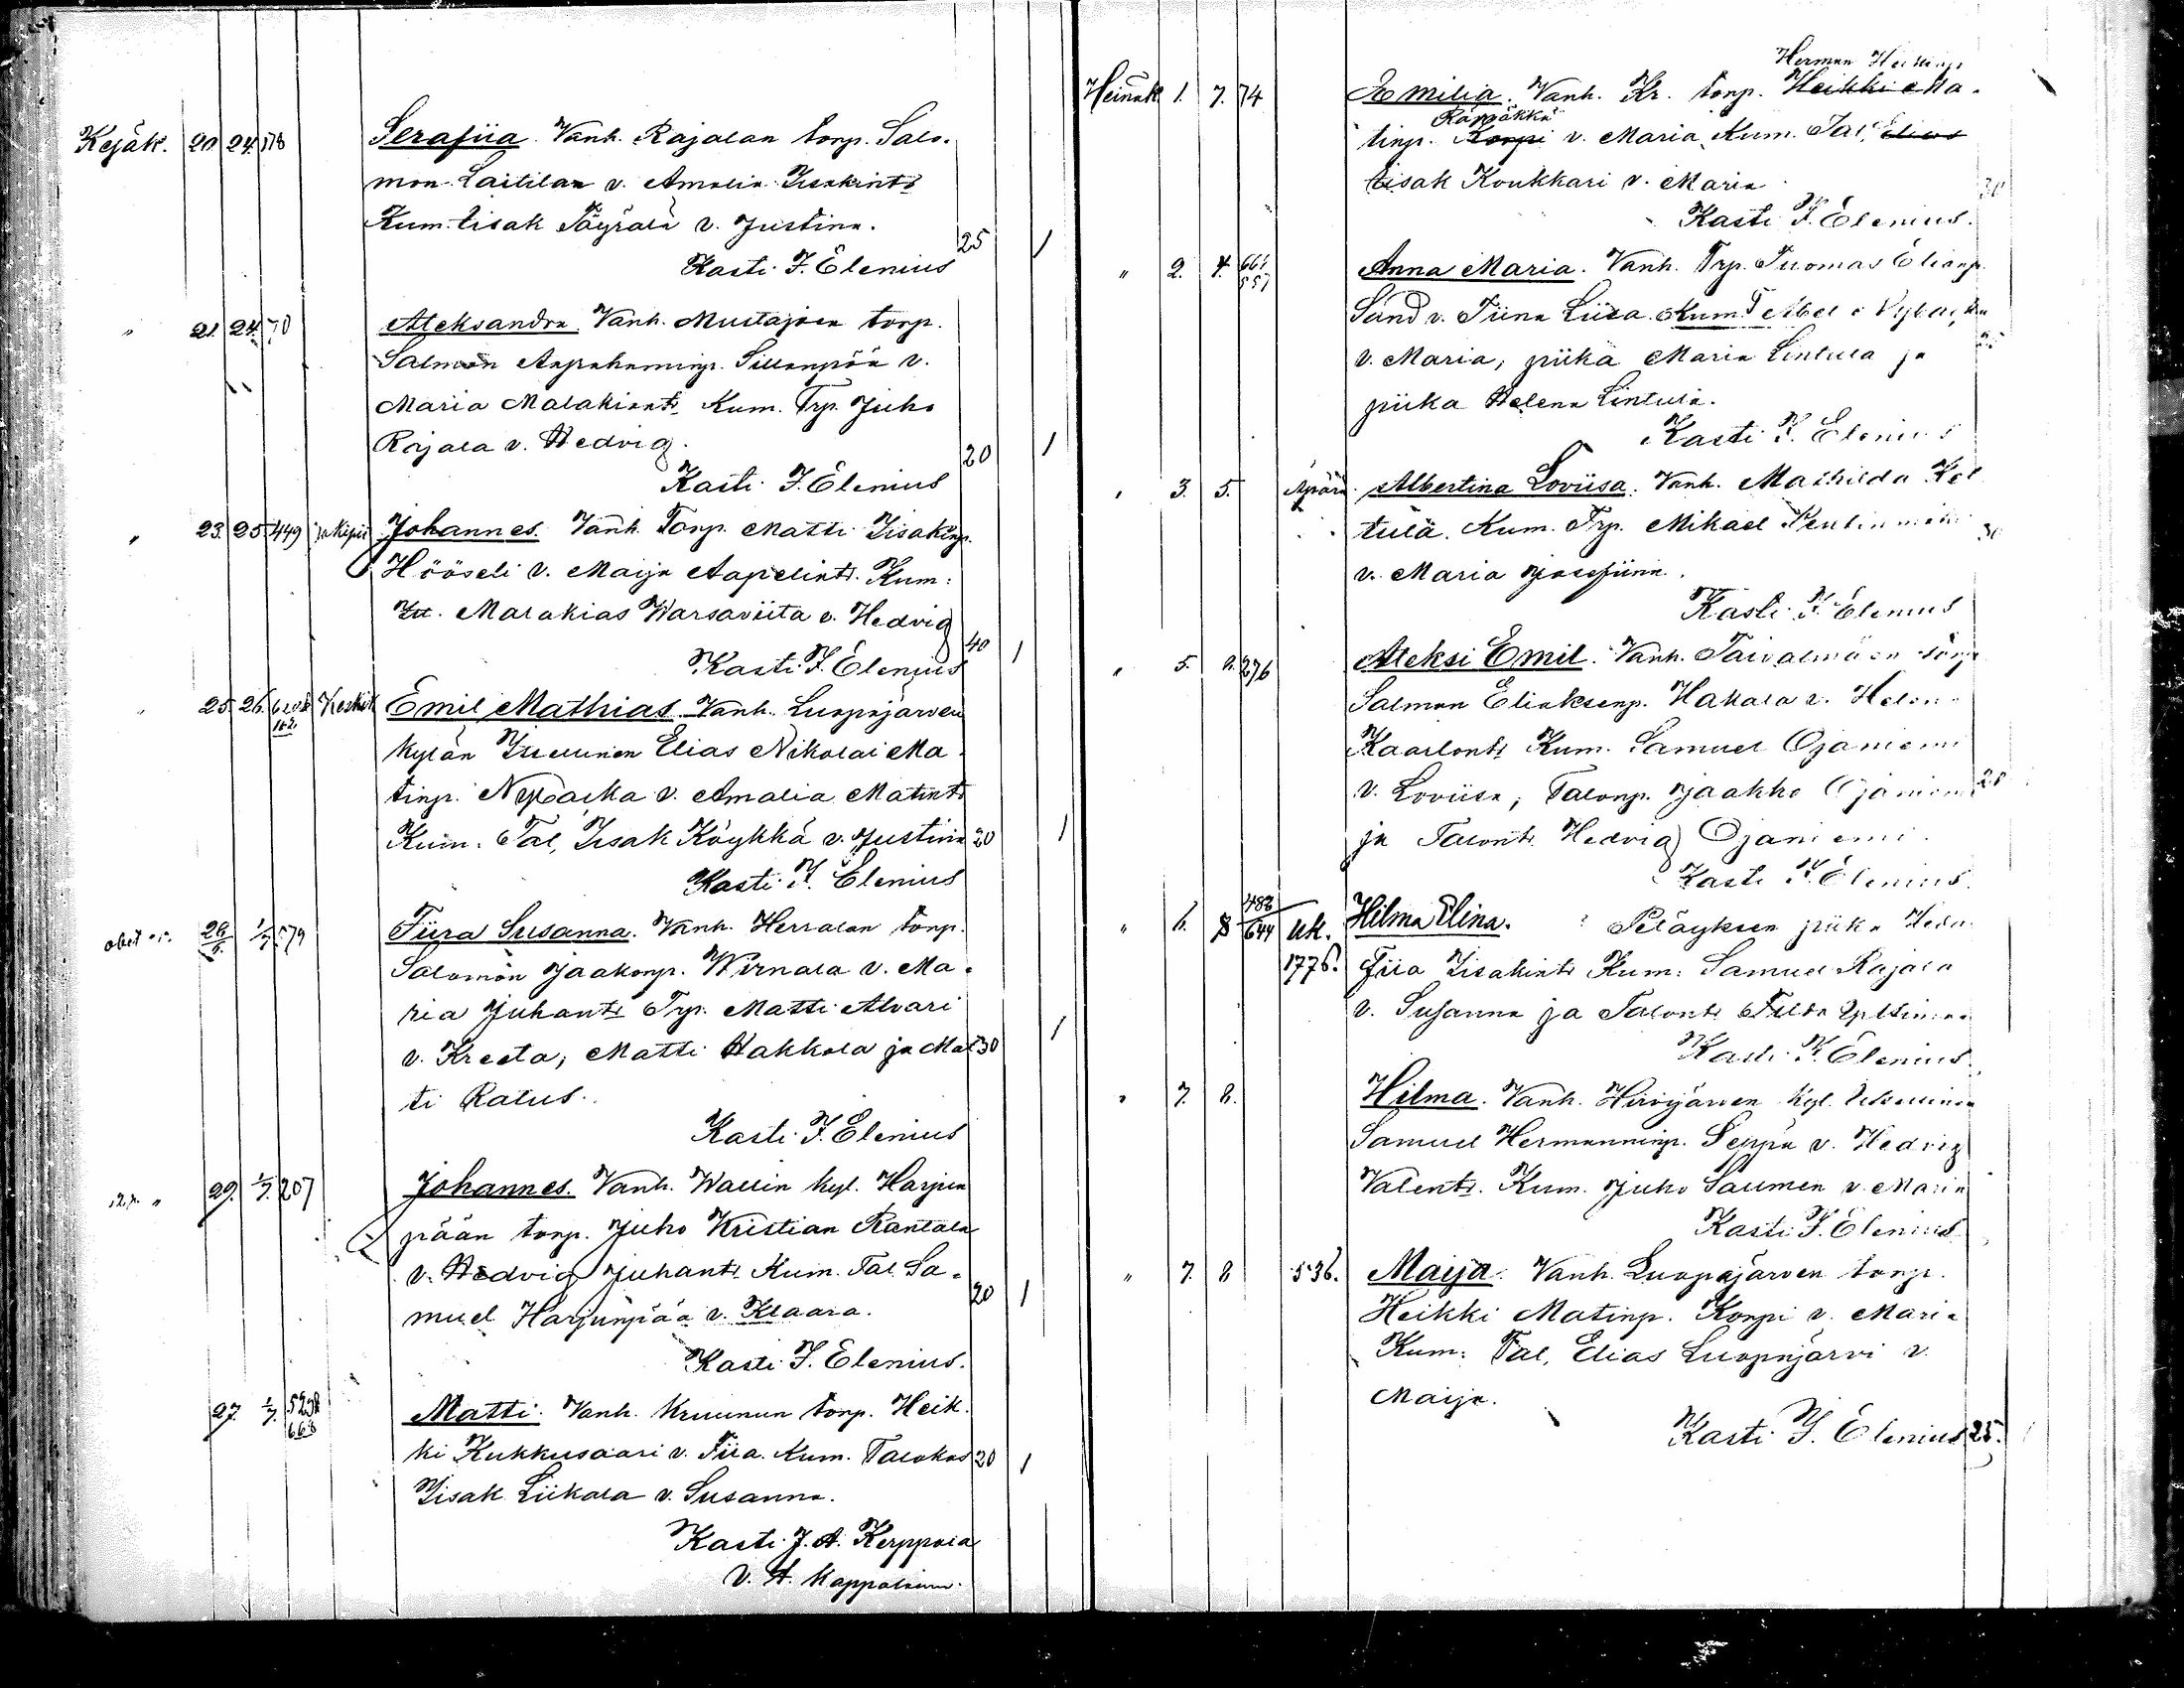 Kejäk. 20 24. 178 Serafiia. Vanh. Rajalan torp. Salo-
mon Laitilan v. Amalia Iisakints
Kum: Iisak Töyrälä v. Justina. 25 1
Kasti J. Elenius
" 21. 24. 70 Aleksandra. Vanh. Mustajoen torp.
Salmon Sillanpää v.
Maria Malakiants. Kum. Trp. Juho
Rajala v. Hedvig. 20 1
Kasti J. Elenius
" 23. 25. 449 Johannes. Vanh. Torp. Matti Iisakinp.
Hööseli v. Maija Aapelints. Kum:
Malakias Warsaviita v. Hedvig 40 1
Kasti J. Elenius
" 25. 26. Emil Mathias Vanh. Luopajärven
kylän Elias Nikolai Ma-
tinp. Nybacka v. Amalia Matints
Kum. Tal, Iisak Köykkä v. Justina 20 1
Kasti J. Elenius
26. 1/7. 579 Tiira Susanna. Vanh. Herralan torp.
Salomon Jaakonp. Wirnala v. Ma-
ria Juhants Trp. Matti Alvari
v. Kreeta, Matti Hakkola ja Mat- 30 1
ti Ratus.
Kasti J. Elenius
29. 1/7. 207 Johannes. Vanh. Wallin kyl. Harjun
pään torp. Juho Kristian Rantala
v. Hedvig Juhants. Kum. Tal. Sa-
muel Harjunpää v. Klaara. 20 1
Kasti J. Elenius.
27. 1/7. 668 Matti. Vanh. Kruunun torp. Heik-
ki Kukkusaari v. Tiia. Kum. Talokas 20 1
Iisak Liikala v. Susanna.
Kasti J. A. Kerppola
v. t. kappalainen.
Herman
Heinäk. 1. 7. 74 Emilia. Vanh. Kr. torp. Heikki Ma-
Räppäkkä
tinp. Korpi v. Maria Kum. Tal, Elias
Iisak Koukkari v. Maria 30
Kasti J. Elenius.
" 2. 7. 661 557 Anna Maria. Vanh. Trp. Tuomas Elianp.
Sand v. Tiina Liisa. Kum. T Abel Nybacka
v. Maria, piika Maria Lintula ja 25
piika Helena Lintula.
Kasti J. Elenius
" 3. 5. Äpärä Albertina Loviisa. Vanh. Mathilda
tulä. Kum. Trp. Mikael 30
v. Maria Josefiina.
Kasti J. Elenius
" 5. 276 Aleksi Emil. Vanh. Taivalmäen torp
Salmon Eliaksenp. Hakala v. Helen-
Kaarlonts Kum. Samuel Ojaniemi
v. Loviisa, Talonp. Jaakko Ojaniemi 25
ja Talonts Hedvig Ojaniemi.
Kasti J. Elenius.
" 6. 8 488 644 Uk. Hilma Elina. Peläyksen piika Hedv.
1776. Fiia Iisakints Kum: Samuel Rajala
v. Susanna ja Talonts Tilda
Kasti J. Elenius.
" 7. 8. Hilma. Vanh. Hirvijärven kyl.
Samuel Hermanninp. Seppä v. Hedvig
Valents. Kum. Juho Saumen v. Maria
Kasti J. Elenius
" 7. 8 536. Maija. Vanh. Luopajärven torp.
Heikki Matinp. Korpi v. Maria
Kum: Tal, Elias Luopajärvi v.
Maija.
Kasti J. Elenius 25.